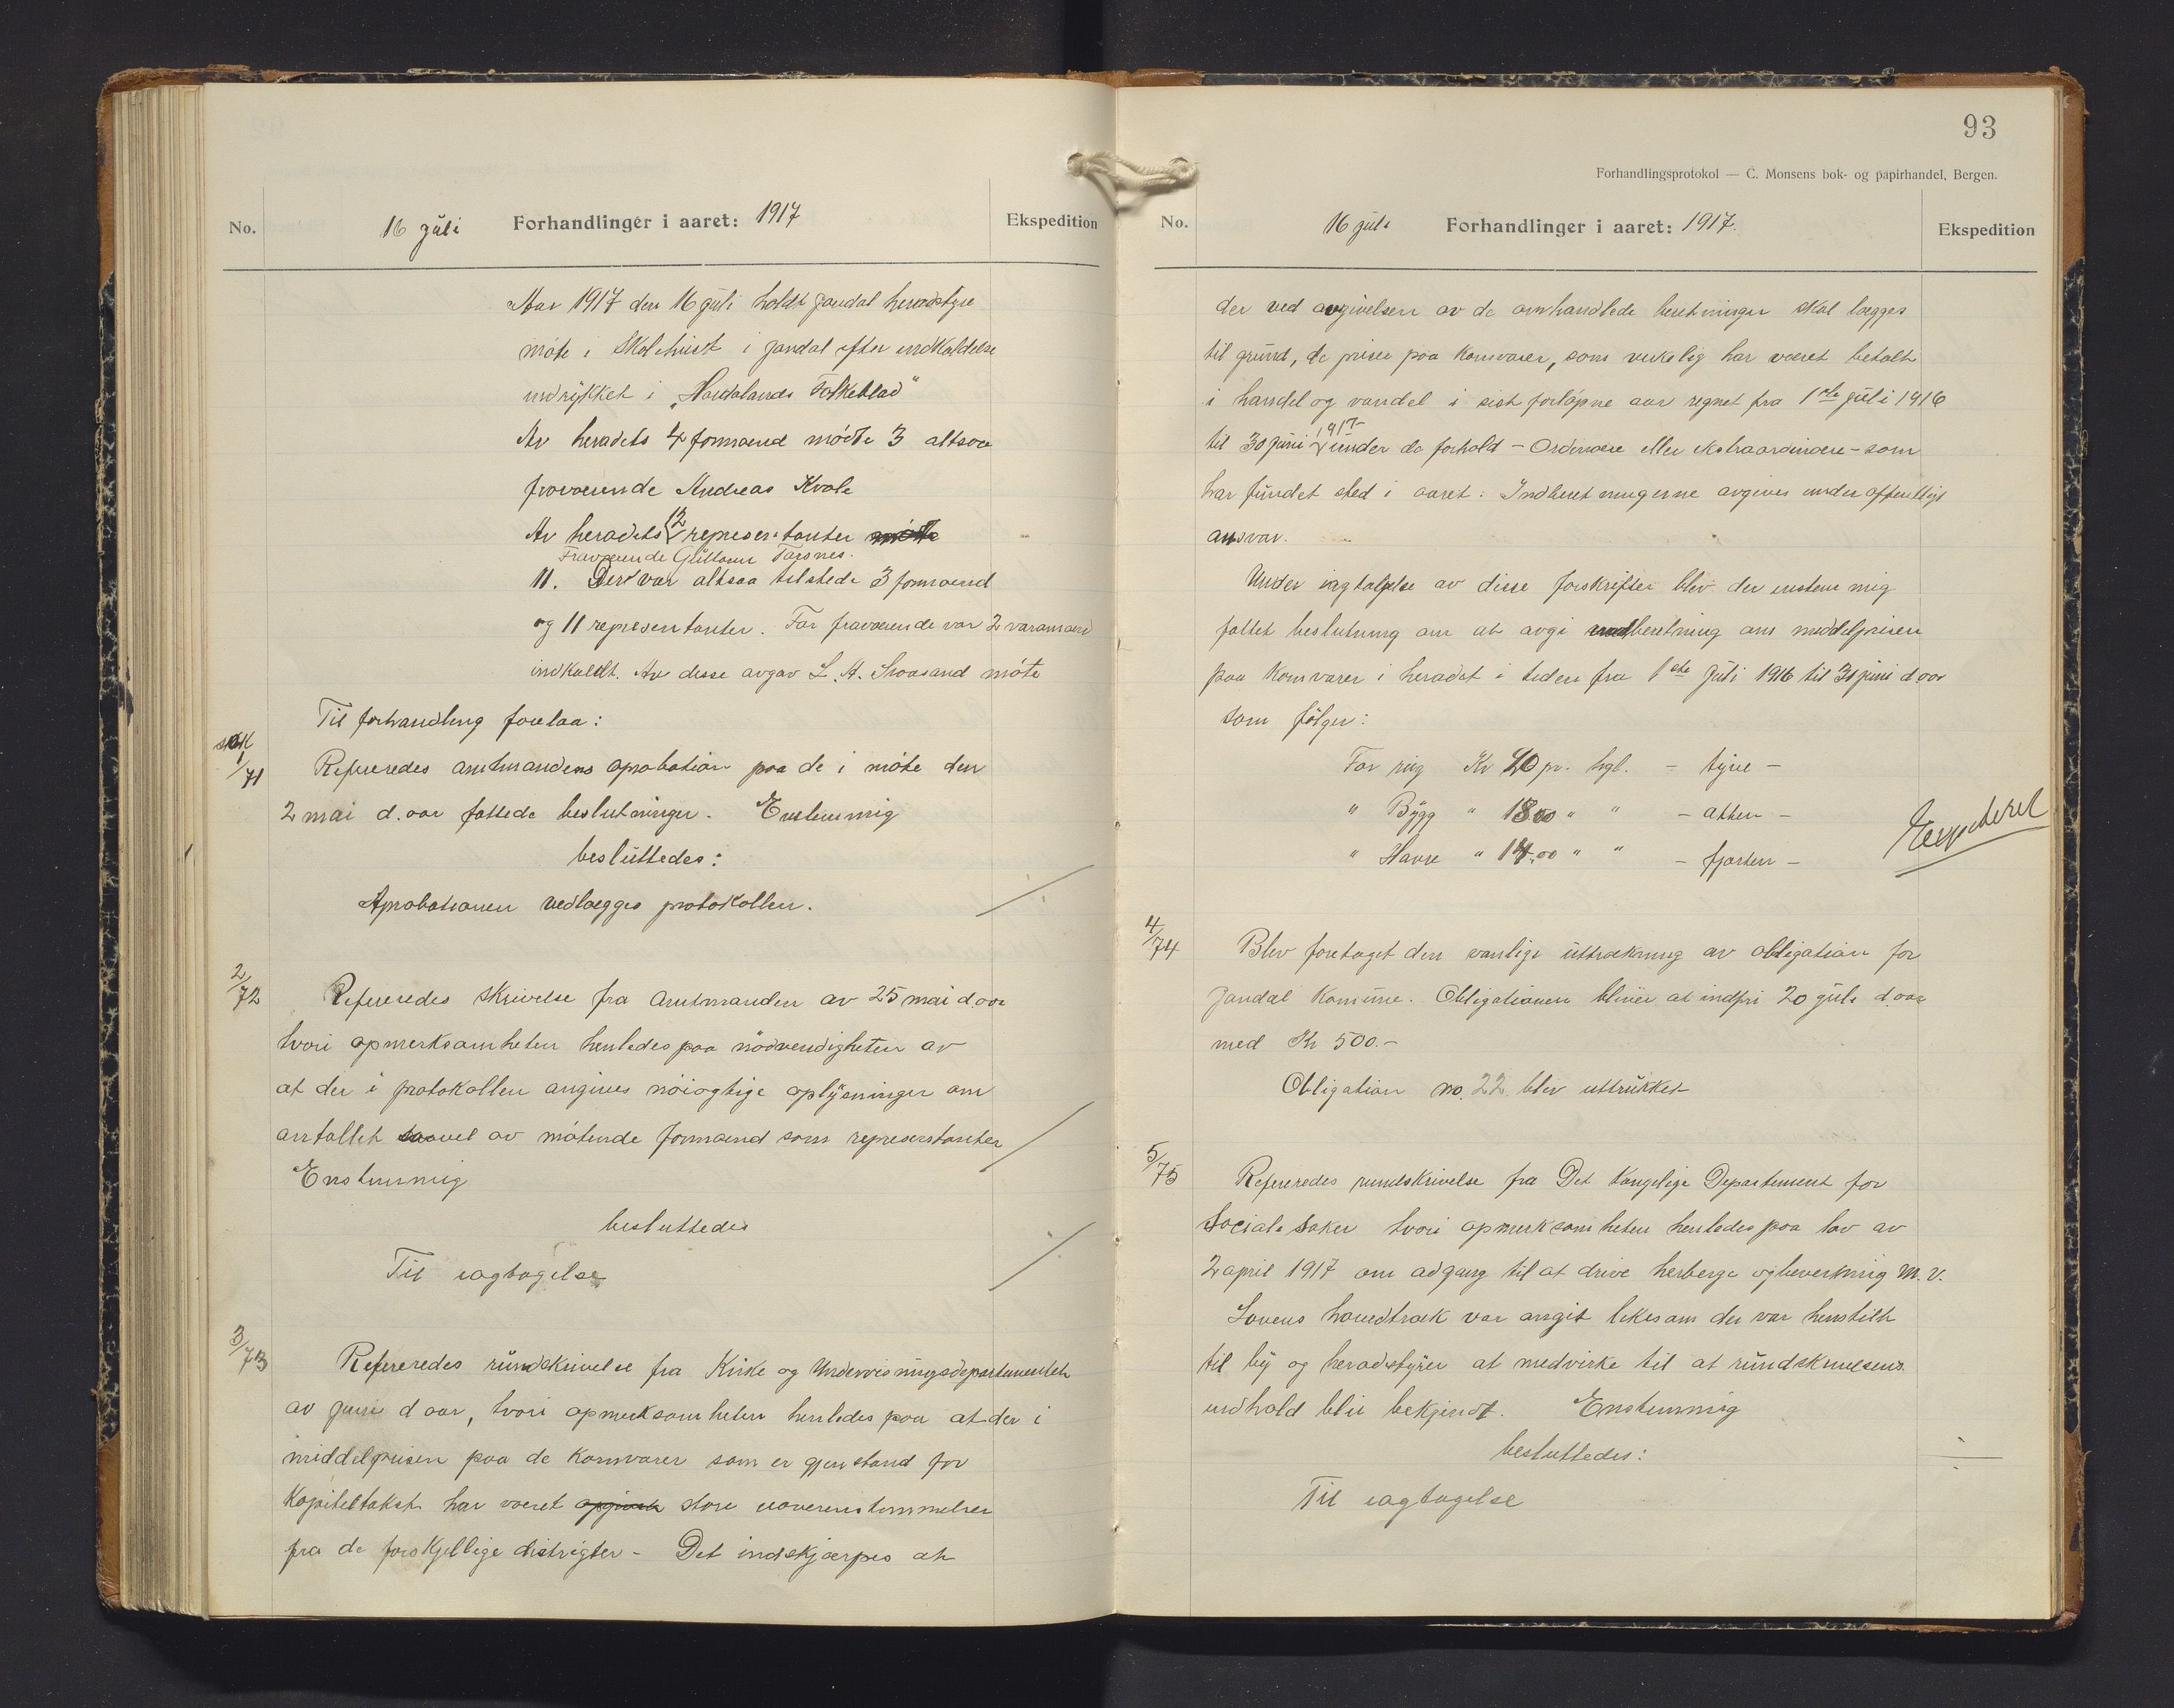 No.
16 juli Forhandlinger i aaret: 1917
Ekspedition
Aar 1917 den 16 juli holdt Jondal heradstyre
möte i Skolehuset i Jondal efter indkaldelse
indrykket i "Hordalands Folkeblad"
Av heradets 4 formænd mödte 3 altsaa
fraværende Andreas Kvale
Av heradets 12 representanter mötte
Fraværende Guttorm Torsnes.
11. Der var altsaa tilstede 3 formænd
og 11 representanter. For fraværende var 2 varamænd
indkaldt. Av disse avgav L. A. Svaasand möte
Til forhandling forelaa:
sak
1/71 Refereredes amtmandens aprobation paa de i möte den
2 mai d. aar fattede beslutninger. Enstemmig
besluttedes:
Aprobationen vedlægges protokollen.
2/72 Refereredes skrivelse fra Amtmanden av 25 mai d. aar
hvori opmerksamheten henledes paa nödvendigheten av
at der i protokollen angives nöiagtige oplysninger om
antallet saavel av mötende formænd som representanter
Enstemmig
besluttedes
Til iagtagelse
3/73 Refereredes rundskrivelse fra Kirke og Undervisningsdepartementet
av juni d aar, hvori opmerksomheten henledes paa at der i
middelprisen paa de kornvarer som er gjenstand for
Kapiteltakst har været opgivet store uoverenstemmelser
fra de forskjellige distrigter - Det indskjærpes at
93
Forhandlingsprotokol — C. Monsens bok- og papirhandel, Bergen.
No.
16 juli Forhandlinger i aaret: 1917.
Ekspedition
der ved avgivelsen av de omhandlede beretninger skal lægges
til grund, de priser paa kornvarer, som virkelig har været betalt
i handel og vandel i sist forløpne aar regnet fra 1ste juli 1916
til 30 juni 1917 under de forhold - Ordinære eller ekstraordinære - som
har fundet sted i aaret. Indberetningerne avgives under offentligt
ansvar.
Under iagtagelse av disse forskrifter blev der enstemmig
fattet beslutning om at avgi indberetning om middelprisen
paa kornvarer i heradet i tiden fra 1ste Juli 1916 til 30 juni d. aar
som fölger:
For rug Kr 20 pr. hgl. - tyve -
" Bygg " 18.00 " " - atten -
" Havre " 14.00 " " - fjorten -
Expederet
4/74 Blev foretaget den vanlige uttrækning av obligation for
Jondal Komune. Obligationen bliver at indfri 20 juli d. aar
med Kr 500.-
Obligation no. 22 blev uttrukket
5/75 Refereredes rundskrivelse fra Det kongelige Departement for
Sociale Saker hvori opmerksomheten henledes paa lov av
2 april 1917 om adgang til at drive herberge og bevertning m. v.
Lovens hovedtræk var angit likesom der var henstilt
til by og heradstyrer at medvirke til at rundskrivelsens
indhold blir bekjendt. Enstemmig
besluttedes:
Til iagtagelse